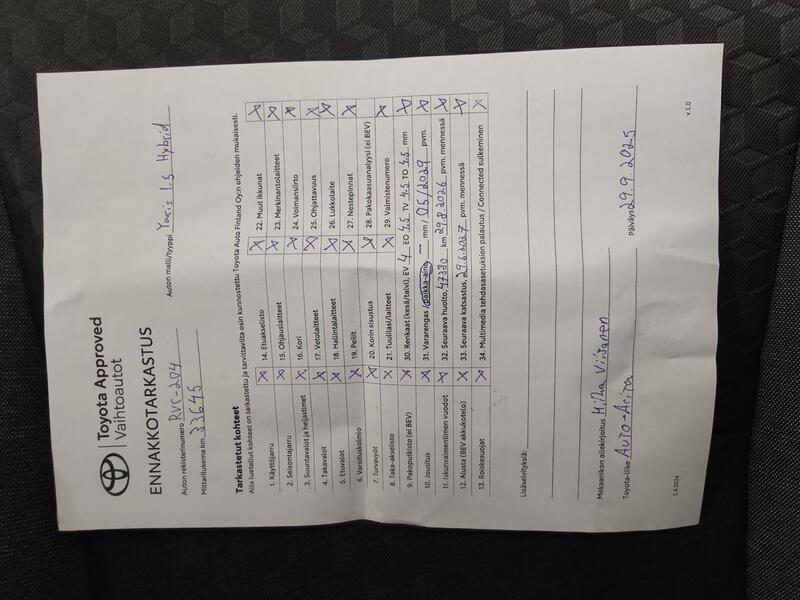 Toyota Approved
Vaihtoautot
ENNAKKOTARKASTUS
Auton rekisterinumero RVC-204 Auton malli/tyyppi Yaris 1.5 Hybrid
Mittarilukema km 33645
Tarkastetut kohteet
Alla luetellut kohteet on tarkastettu ja tarvittavilta osin kunnostettu Toyota Auto Finland Oy:n ohjeiden mukaisesti.
1. Käyttöjarru X 14. Etuakselisto X 22. Muut ikkunat X
2. Seisontajarru X 15. Ohjauslaitteet X 23. Merkinantolaitteet X
3. Suuntavalot ja heijastimet X 16. Kori X 24. Voimansiirto X
4. Takavalot X 17. Vetolaitteet X 25. Ohjattavuus X
5. Etuvalot X 18. Hallintalaitteet X 26. Lukkolaite X
6. Varoituskolmio X 19. Peilit X 27. Nestepinnat X
7. Turvavyöt X 20. Korin sisustus X 28. Pakokaasuanalyysi (ei BEV)
8. Taka-akselisto X 21. Tuulilasi/laitteet X 29. Valmistenumero X
9. Pakoputkisto (ei BEV) X 30. Renkaat (kesä/talvi), EV 4 EO 4.5 TV 4.5 TO 4.5 mm X
10. Jousitus X 31. Vararengas / paikka-aine — mm / 05/2029 pvm. X
11. Iskunvaimentimen vuodot X 32. Seuraava huolto, 47320 km 29.8.2026 pvm. mennessä X
12. Alusta (BEV akkukotelo) X 33. Seuraava katsastus, 29.6.2027 pvm. mennessä X
13. Roiskesuojat X 34. Multimedia tehdasasetuksien palautus / Connected sulkeminen X
Lisäselvityksiä:
Mekaanikon allekirjoitus Miha
Toyota-liike Auto-Arita Päiväys 29.9.2025
1.4.2026 v 1.0